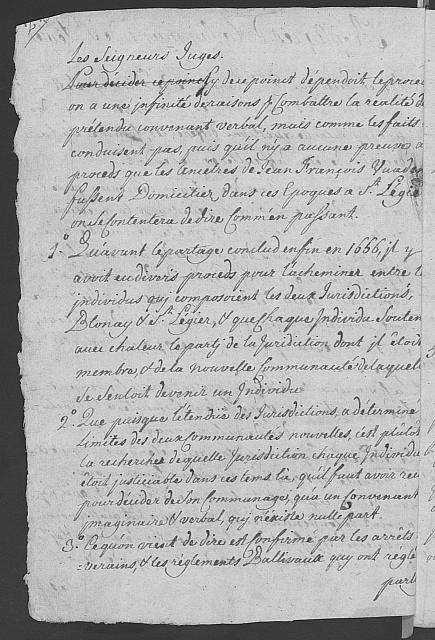 Les Seigneurs Juges.
Pour décider ce point Sy de ce point dépendoit le proces
on a une infinité de raisons p.r Combattre la realité du
prétendu convenant verbal, mais comme les faits
conduisent pas, puis qu'il n'y a aucune preuve au
proceds que les Ancêtres de Jean François Vuaden
fussent Domicilier dans ces Epoques a S.t Légier
on se contentera de dire Comm'en passant.
1.° Qu'avant le partage conclud enfin en 1666, il y
avoit eu divers proceds pour l'acheminer entre les
individus qui composoient les deux Jurisdictions,
Blonay & S.t Légier, & que Chaque Individu Souten
avec chaleur le party de la Juridiction dont il étoit
membre, & de la nouvelle Communauté de laquelle
Se vouloit devenir un Individu
2.° Que puisque l'etendüe des Jurisdictions, a déterminé
limites des deux Communautés nouvelles, c'est plutôt
la recherche de quelle Jurisdiction chaque Individu
étoit justiciable dans ces tems la, qu'il faut avoir re
pour décider de son Communage, qu'a un Convenant
imaginaire & verbal, qui n'existe nulle part
3.° Ce qu'on vient de dire est Confirmé par les arrêts
=verains, & les réglements Ballivaux qui ont reglé
part